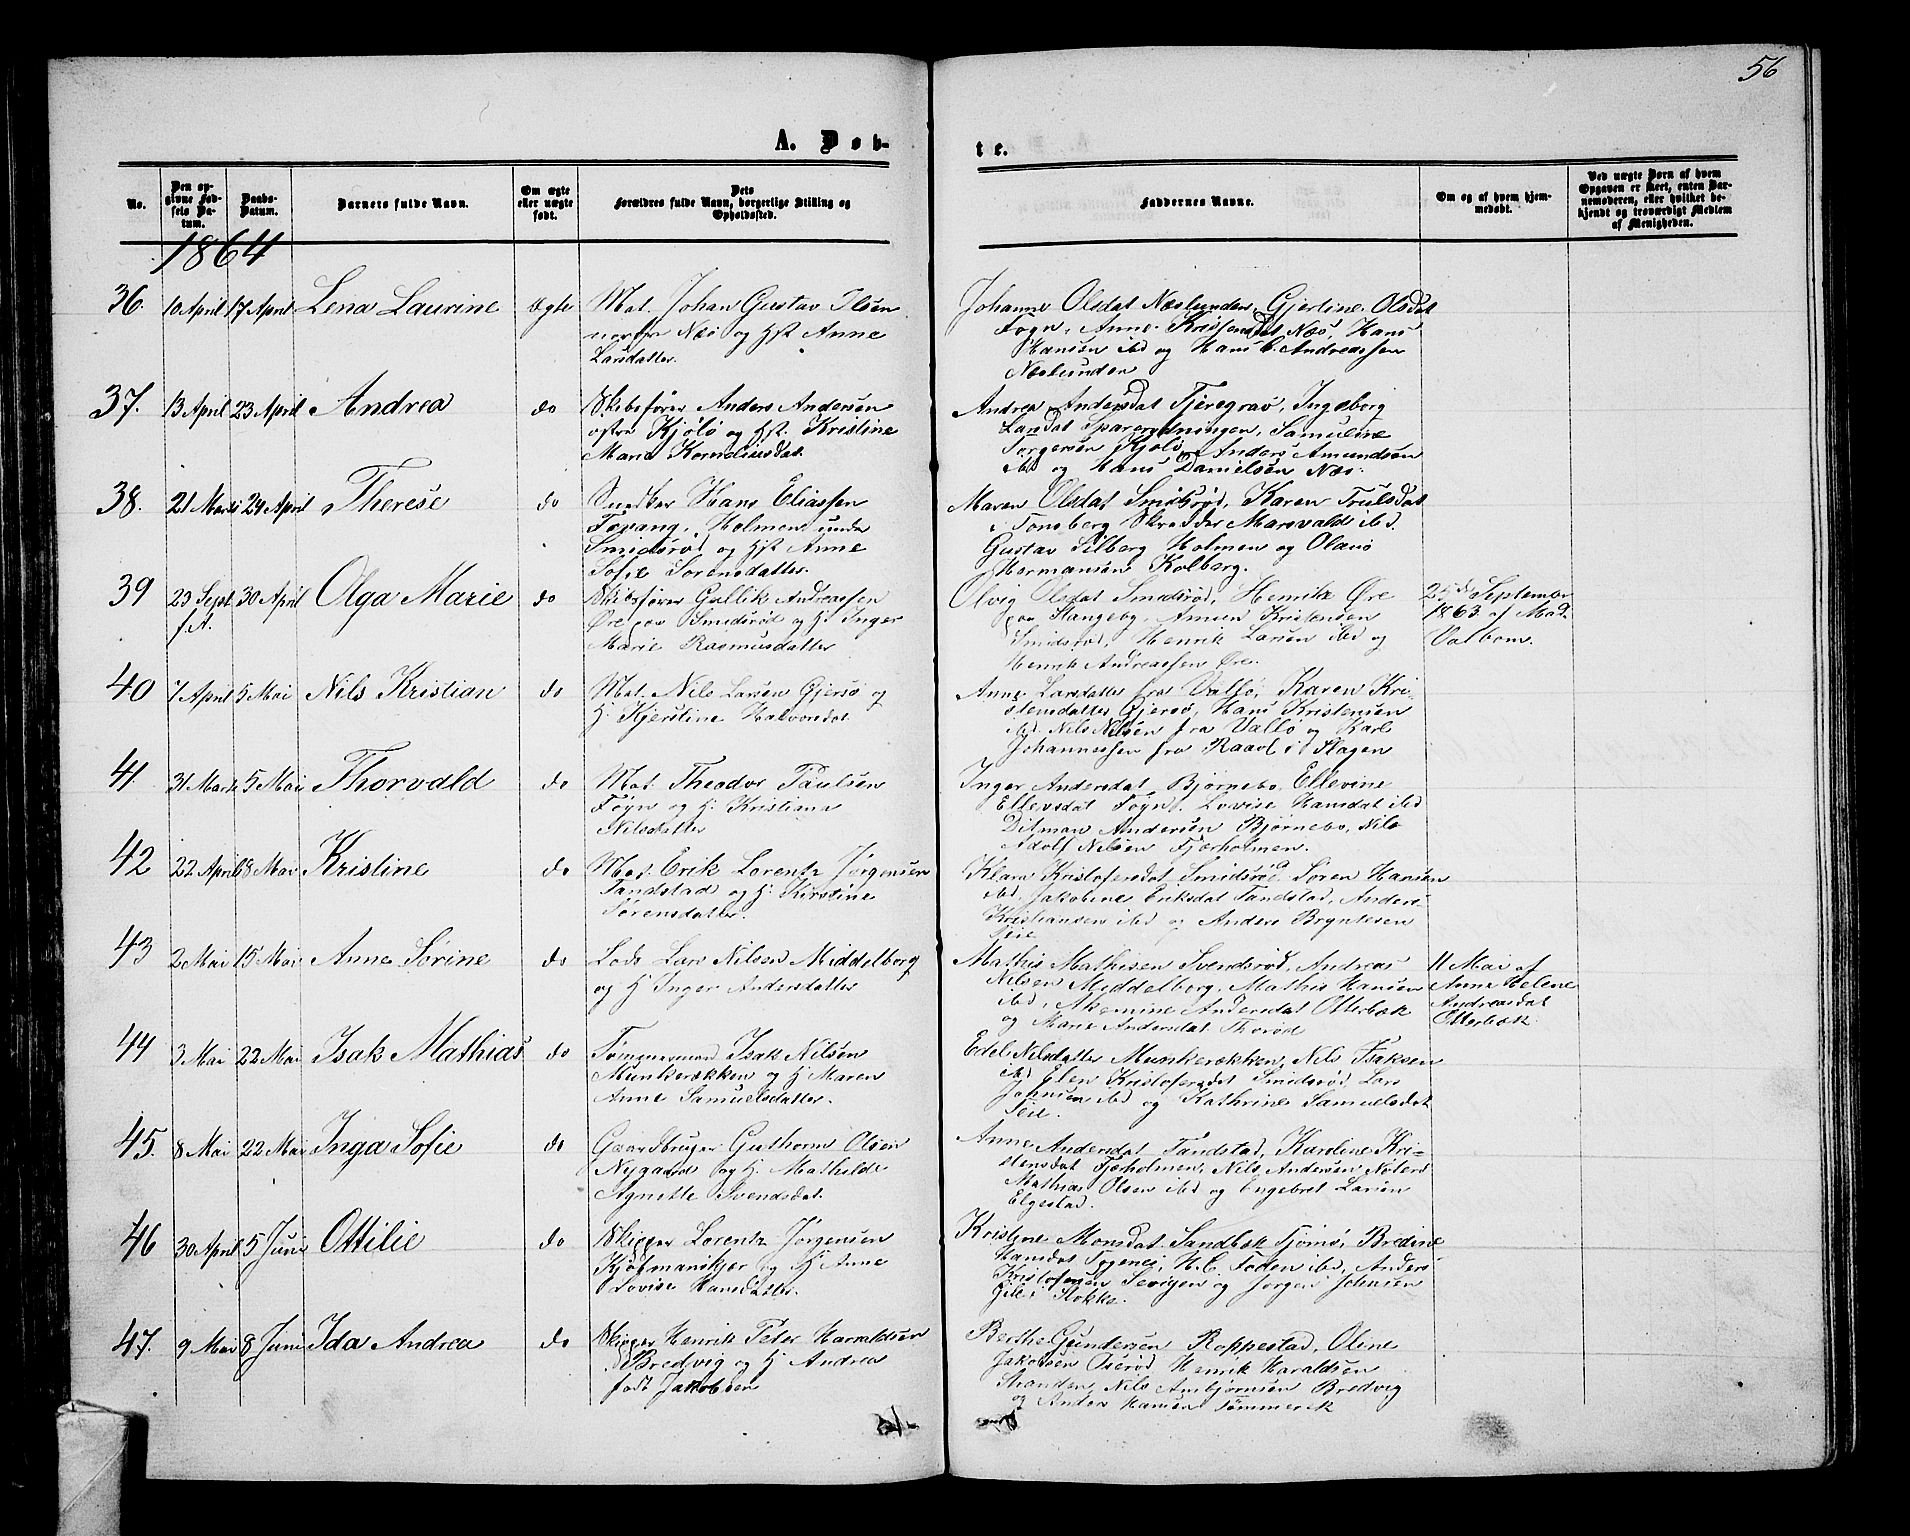 56
A. Døb-
te.
No.
Den op-
givne Fød-
sels Da-
tum.
Daabs-
Datum.
Barnets fulde Navn.
Om ægte
eller uægte
født.
Dets
Forældres fulde Navn, borgerlige Stilling og
Opholdssted.
Faddernes Navne.
Om og af hvem hjem-
medøbt.
Ved uægte Børn af hvem
Opgaven er skeet, enten Bar-
nemoderen, eller hvilket be-
kjendt og troværdigt Medlem
af Menigheden.
1864
36. 10 April 17 April Lena Laurine Ægte Mat. Johan Gustav Olsen
Næs og Hst Anne
Larsdatter.
Johanne Olsdat Næslunden, Gjertine Olsdat
Føgn, Anne Kristensdat Næs, Hans
Hansen ibd og Hans C. Andreassen
Næslunden
37. 13 April 23 April Andrea do Skibsfører Anders Andersen
østre Kjøló og Hst. Kristine
Marie Korneliusdat.
Andrea Andersdat Tjeregraó, Ingeborg
Larsdat Sparerødningen, Samuline
Torgersen Kjøló, Anders Amundsen
ibd og Hans Danielsen Næs.
38. 21 Marts 24 April Therese do Snedker Hans Eliassen
Holmen under
Smidsrød og Hst Anne
Sofie Sorensdatter.
Maren Olsdat Smidsrød, Karen Trulsdat
i Tønsberg Skrædder Marsvald ibd.
Gustav Silberg Holmen og Olaus
Hermansen Kolberg.
39 23 Sept. 30 April Olga Marie do Skibsfører Gullik Andreassen
f.A.
Øre paa Smidsrød og H. Inger
Marie Rasmusdatter
Olvig Olsdat Smidsrød, Henrik Øre
paa Slangeby, Amien Kristensen
Smidsrød, Henrik Larsen ibd og
Henrik Andreassen Øre.
25de September
1863 af Mad.
Valbom.
40 7 April 5 Mai Nils Kristian do Mat. Nils Larsen Gjersø og
H. Kjerstine Halvorsdat
Anne Larsdatter fra Valló, Karen Kri-
stensdatter Gjersø, Hans Kristensen
ibd. Nils Nilsen fra Valló og Karl
Johannessen fra Raael i Slagen
41 31 Marts 5 Mai Thorvald do Mat. Theodor Paulsen
Føyn og H. Kristiana
Nilsdatter
Inger Andersdat Bjørnebo, Ellevine
Ellevsdat Føyn, Lovise Hansdat ibd
Ditman Andersen Bjørnebo, Nils
Adolf Nilsen Fjærholmen.
42 22 April 8 Mai Kristine do Mat. Erik Lorentz Jørgensen
Tandstad og H. Kirstine
Sørensdatter.
Klara Kristofersdat Smidsrød Søren Hansen
ibd, Jakobine Eriksdat Tandstad, Anders
Kristiansen ibd og Anders Bryntesen
Seie
43 2 Mai 15 Mai Anne Sørine do Lods Lars Nilsen Middelborg
og H Inger Andersdatter
Mathis Mathisen Svendsrød, Andreas
Nilsen Middelborg, Mathis Hansen
ibd, Andersdat Otterbæk
og Marie Andersdat Thorød
11 Mai af
Anne Helene
Andreasdat
Otterbæk.
44 3 Mai 22 Mai Isak Mathias do Tømmermand Isak Nilsen
Munkerækken og H Maren
Anne Samuelsdatter.
Edel Nilsdatter Munkerækken, Nils Isaksen
ibd Elen Kristofersdat Smidsrød, Lars
Johnsen ibd og Kathrine Samuelsdat
Seie.
45. 8 Mai 22 Mai Inga Sofie do Gaardbruger Guthorm Olsen
Nygaard og H. Mathilde
Agnette Svendsdat.
Anne Andersdat Tandstad, Karoline Kri-
stensdat Fjærholmen, Nils Andersen Nøterø
Mathias Olsen ibd og Engebret Larsen
Elgestad.
46 30 April 5 Juni Ottilie do Skipper Lorentz Jørgensen
Kjøbmanskjær og H Anne
Lovise Hansdatter.
Kristine Monsdat Sandbæk Tjømø, Bredine
Hansdat H. C. Foden ibd, Anders
Kristofersen og Jørgen Johnsen
Gile i Stokke.
47. 9 Mai 8 Juni Ida Andrea do Skipper Henrik Peter Haraldsen
Bredvig og H. Andrea
født Jakobsen
Berthe Gundersen Roppestad, Oline
Jakobsen Henrik Haraldsen
Stranden, Nils Ambjørnsen Bredvig
og Anders Hansen Tømmerek